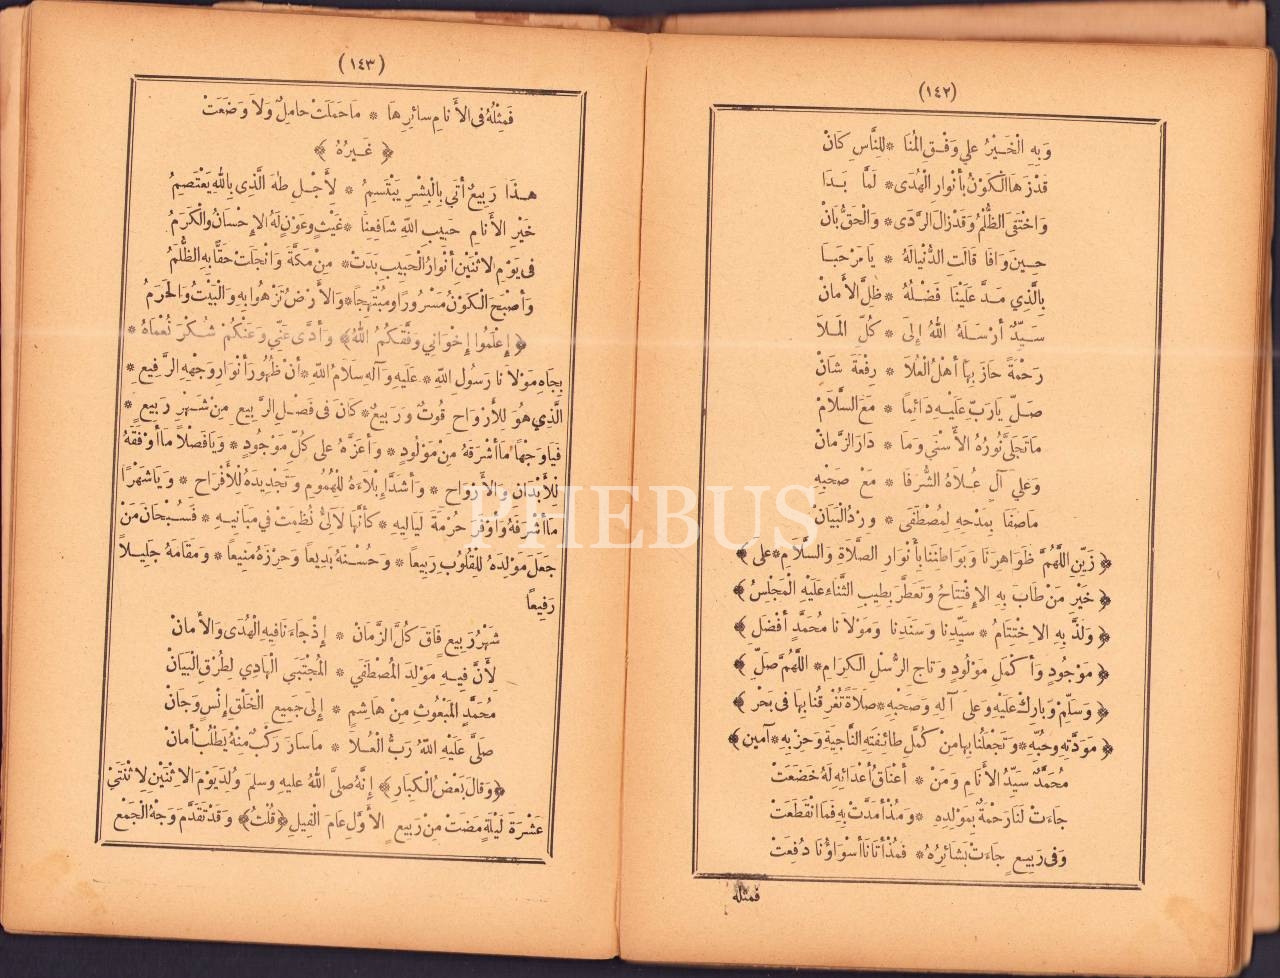 (١٤٢)
وَبِهِ الْخَيْرُ عَلِي وَفْقِ الْمُنَا * لِلنَّاسِ كَانْ
قَدْ زَهَا الْكَوْنُ بِأَنْوَارِ الْهُدَى * لَمَّا بَدَا
وَاخْتَفَى الظُّلْمُ وَقَدْ زَالَ الرَّدَى * وَالْحَقُّ بَانْ
حِينَ وَافَا قَالَتِ الدُّنْيَالَهُ * يَا مَرْحَبَا
بِالَّذِي مَدَّ عَلَيْنَا فَضْلُهُ * ظِلَّ الأَمَانْ
سَيِّدٌ أَرْسَلَهُ اللهُ إِلَى * كُلِّ الْمَلَا
رَحْمَةً حَازَ بِهَا أَهْلُ الْعُلَا * رِفْعَةَ شَانْ
صَلِّ يَارَبِّ عَلَيْهِ دَائِمًا * مَعَ السَّلَامْ
مَا تَجَلَّى نُورُهُ الأَسْنَي وَمَا * دَارَ الزَّمَانْ
وَعَلِي آلِ عُلَاهُ الشُّرَفَا * مَعْ صَحْبِهِ
مَاصَفَا بِمَدْحِهِ لِمُصْطَفَى * وِرْدُ الْبَيَانْ
﴿ زَيِّنِ اللَّهُمَّ ظَوَاهِرَنَا وَبَوَاطِنَنَا بِأَنْوَارِ الصَّلَاةِ وَالسَّلَامِ * عَلَى ﴾
﴿ خَيْرِ مَنْ طَابَ بِهِ الإِفْتِتَاحُ وَتَعَطَّرَ بِطِيبِ الثَّنَاءِ عَلَيْهِ الْمَجْلِسُ ﴾
﴿ وَلَذَّ بِهِ الاِخْتِتَامُ * سَيِّدِنَا وَسَنَدِنَا وَمَوْلَانَا مُحَمَّدٍ أَفْضَلِ ﴾
﴿ مَوْجُودٍ وَأَكْمَلِ مَوْلُودٍ وَتَاجِ الرُّسْلِ الْكِرَامِ * اللَّهُمَّ صَلِّ ﴾
﴿ وَسَلِّمْ وَبَارِكْ عَلَيْهِ وَعَلَى آلِهِ وَصَحْبِهِ * صَلَاةً تُغْرِقُنَا بِهَا فِى بَحْرِ ﴾
﴿ مَوَدَّتِهِ وَحُبِّهِ * وَتَجْعَلُنَا بِهَا مِنْ كُمَّلِ طَائِفَتِهِ النَّاجِيَةِ وَحِزْبِهِ * آمين ﴾
مُحَمَّدٌ سَيِّدُ الأَنَامِ وَمَنْ * أَعْنَاقُ أَعْدَائِهِ لَهُ خَضَعَتْ
جَاءَتْ لَنَا رَحْمَةٌ بِمَوْلِدِهِ * وَمُذْ أَمَدَّتْ بِهِ فَمَا انْقَطَعَتْ
وَفِى رَبِيعٍ جَاءَتْ بَشَائِرُهُ * فَمُذْ أَتَانَا أَسْوَاؤُنَا دُفِعَتْ
فمثله
(١٤٣)
فَمِثْلُهُ فِى الأَنَامِ سَائِرِهَا * مَا حَمَلَتْ حَامِلٌ وَلَا وَضَعَتْ
﴿ غَيرُهُ ﴾
هذَا رَبِيعٌ أَتَي بِالْبِشْرِ يَبْتَسِمُ * لِأَجْلِ طهَ الَّذِي بِاللهِ يَعْتَصِمُ
خَيْرِ الأَنَامِ حَبِيبِ اللهِ شَافِعِنَا * غَيْثٍ وَعَوْنٍ لَهُ الإِحْسَانُ وَالْكَرَمُ
فِى يَوْمِ الاثْنَيْنِ أَنْوَارُ الْحَبِيبِ بَدَتْ * مِنْ مَكَّةَ وَانْجَلَتْ حَقًّا بِهِ الظُّلَمُ
وَأَصْبَحَ الْكَوْنُ مَسْرُورًا وَمُبْتَهِجًا * وَالأَرْضُ تَزْهُو بِهِ وَالْبَيْتُ وَالْحَرَمُ
﴿ إِعْلَمُوا إِخْوَانِي وَفَّقَكُمُ اللهُ ﴾ وَأَدَّى عَنِّي وَعَنْكُمْ شُكْرَ نُعْمَاهُ *
بِجَاهِ مَوْلَانَا رَسُولِ اللهِ * عَلَيهِ وَآلِهِ سَلَامُ اللهِ * أَنْ ظُهُورَ أَنْوَارِ وَجْهِهِ الرَّفِيعِ *
الَّذِي هُوَ لِلأَرْوَاحِ قُوتٌ وَرَبِيعٌ * كَانَ فِى فَصْلِ الرَّبِيعِ مِنْ شَهْرِ رَبِيعٍ *
فَيَا وَجْهًا مَا أَشْرَقَهُ مِنْ مَوْلُودٍ * وَأَعَزَّهُ عَلَى كُلِّ مَوْجُودٍ * وَيَا فَصْلًا مَا أَوْفَقَهُ
لِلأَبْدَانِ وَالأَرْوَاحِ * وَأَشَدَّ إِبْلَاءَهُ لِلْهُمُومِ وَتَجْدِيدَهُ لِلأَفْرَاحِ * وَيَاشَهْرًا
مَا أَشْرَفَهُ وَأَوْفَرَ حُرْمَةَ لَيَالِيهِ * كَأَنَّهَا لَآلِئُ نُظِمَتْ فِى مَبَانِيهِ * فَسُبْحَانَ مَنْ
جَعَلَ مَوْلِدَهُ لِلْقُلُوبِ رَبِيعًا * وَحُسْنَهُ بَدِيعًا وَحِرْزَهُ مَنِيعًا * وَمَقَامَهُ جَلِيلًا
رَفِيعًا
شَهْرُ رَبِيعٍ فَاقَ كُلَّ الزَّمَانْ * إِذْ جَاءَنَا فِيهِ الْهُدَى وَالأَمَانْ
لِأَنَّ فِيهِ مَوْلِدَ الْمُصْطَفَي * الْمُجْتَبَي الْهَادِي لِطُرْقِ الْبَيَانْ
مُحَمَّدٍ الْمَبْعُوثِ مِنْ هَاشِمٍ * إِلَى جَمِيعِ الْخَلْقِ إِنْسٍ وَجَانْ
صَلَّى عَلَيْهِ اللهُ رَبُّ الْعُلَا * مَاسَارَ رَكْبٌ مِنْهُ يَطْلُبْ أَمَانْ
﴿ وَقَالَ بَعْضُ الْكِبَارِ ﴾ إِنَّهُ صلَّى اللهُ عليهِ وسلمَ وُلِدَ يَوْمَ الاِثْنَيْنِ لِاثْنَتَيْ
عَشْرَةَ لَيْلَةٍ مَضَتْ مِنْ رَبِيعٍ الأَوَّلِ عَامَ الْفِيلِ ﴿ قُلْتُ ﴾ وَقَدْ تَقَدَّمَ وَجْهُ الْجَمْعِ
PHEBUS